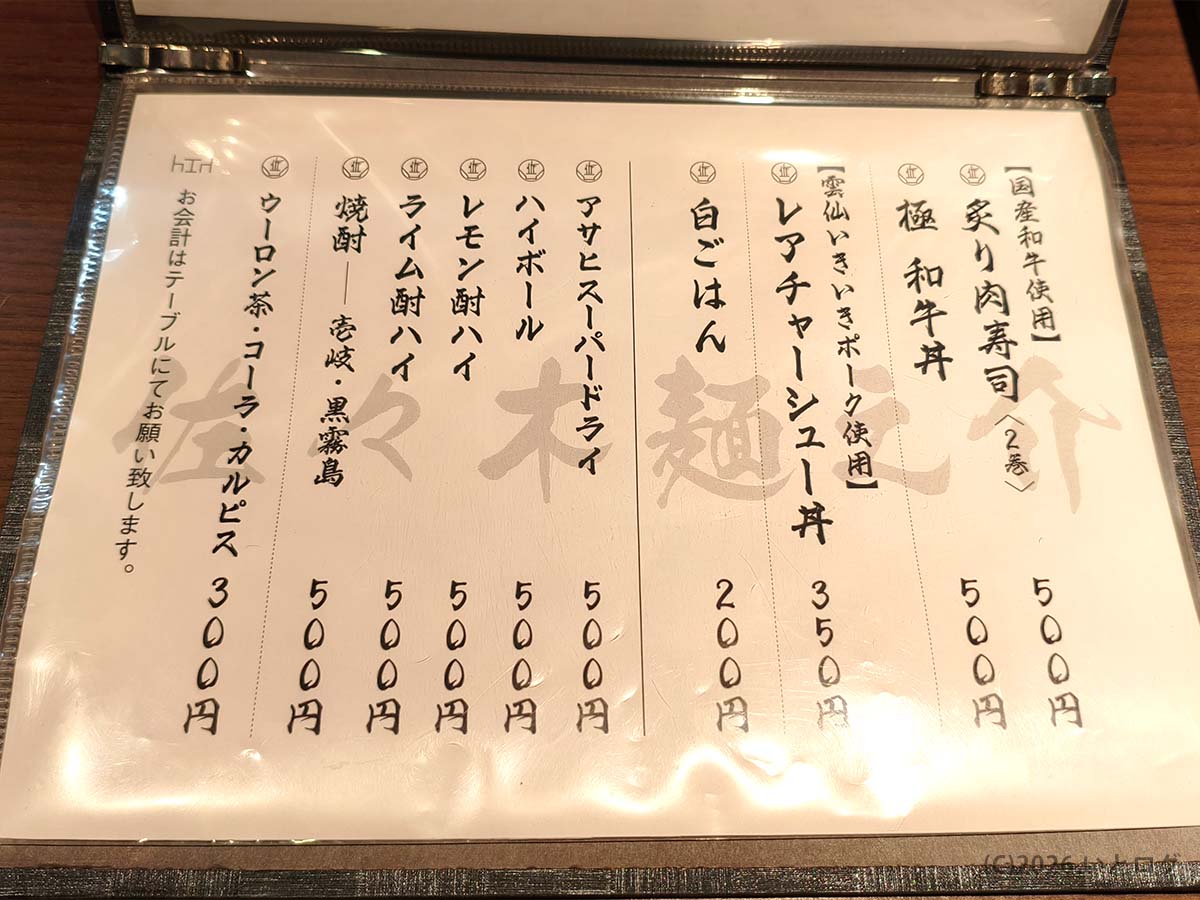 【国産和牛使用】
炙り肉寿司〈2巻〉 500円
極 和牛丼 500円
【雲仙いきいきポーク使用】
レアチャーシュー丼 350円
白ごはん 200円
アサヒスーパードライ 500円
ハイボール 500円
レモン酎ハイ 500円
ライム酎ハイ 500円
焼酎──壱岐・黒霧島 500円
ウーロン茶・コーラ・カルピス 300円
お会計はテーブルにてお願い致します。
佐々木麺之介
(C)2026 いとログ